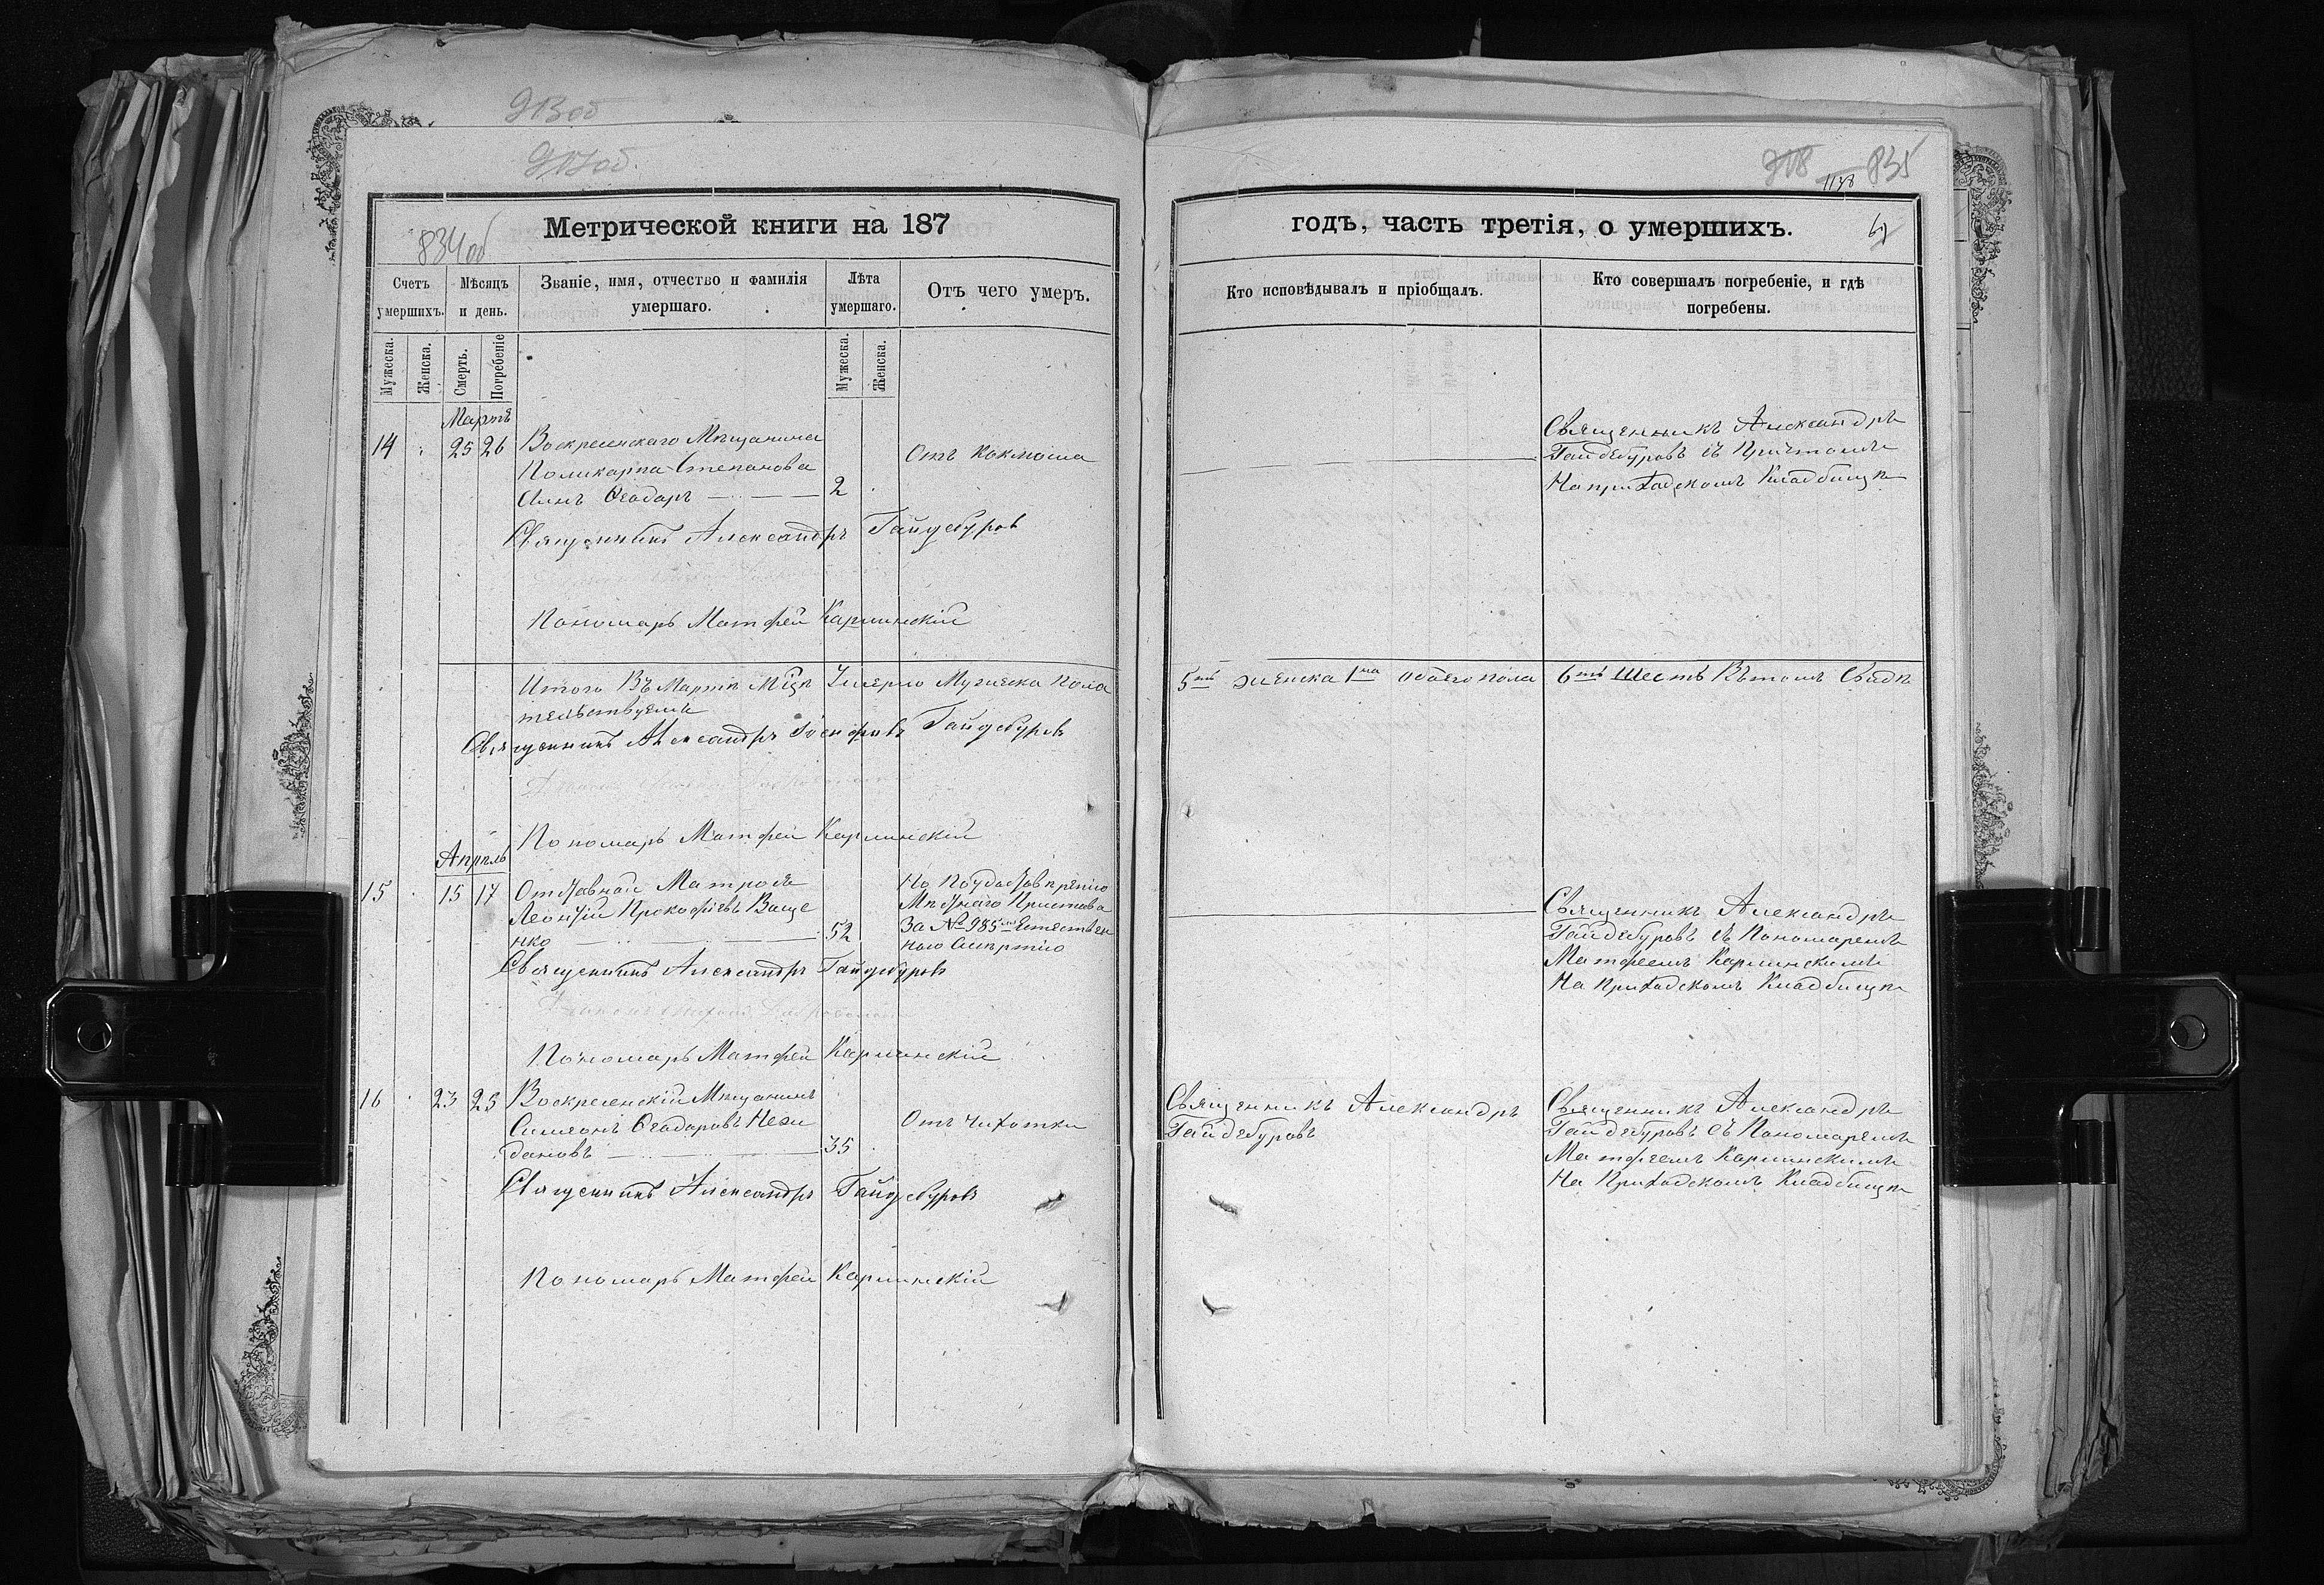 913об
917об.
834об
Метрической книги на 187
Счетъ умершихъ.
Мѣсяцъ и день.
Званіе, имя, отчество и фамилія умершаго.
Лѣта умершаго.
Отъ чего умеръ.
Мужеска.
Женска.
Смерть.
Погребеніе
Мужеска.
Женска.
Мартъ
14 25 26 Воскресенскаго Мѣщанина
Поликарпа Степанова
Сынъ Ѳеодоръ 2
Отъ Коклюша
Священникъ Александръ Гайдебуровъ
Пономарь Матфей Карминскій
Итого Въ Мартѣ Мѣцѣ Умерло Мужеска Пола
тельствуемъ
Священникъ Александръ Іосифовъ Гайдебуровъ
Пономарь Матфей Карминскій
Апрѣль
15 15 17 Отставной Матрозъ
Леонтій Прокофіевъ Ваще
нко 52
По
Мѣстнаго Пристава
За № 985 Естествен
ною Смертію
Священникъ Александръ Гайдебуровъ
Пономарь Матфей Карминскій
16 23 25 Воскресенскій Мѣщанинъ
Симеонъ Ѳеодоровъ Нежи
дановъ 35
Отъ Чихотки
Священникъ Александръ Гайдебуровъ
Пономарь Матфей Карминскій
918 1178 835
годъ, часть третія, о умершихъ.
Кто исповѣдывалъ и пріобщалъ.
Кто совершалъ погребеніе, и гдѣ погребены.
Священникъ Александръ
Гайдебуровъ съ Причтомъ
На приходскомъ Кладбищѣ
5ть Женска 1на обоего пола 6ть Шесть Въ томъ Свидѣ
Священникъ Александръ
Гайдебуровъ съ Пономаремъ
Матфеемъ Карминскимъ
На Приходскомъ Кладбищѣ
Священникъ Александръ
Гайдебуровъ
Священникъ Александръ
Гайдебуровъ съ Пономаремъ
Матфеемъ Карминскимъ
На Приходскомъ Кладбищѣ